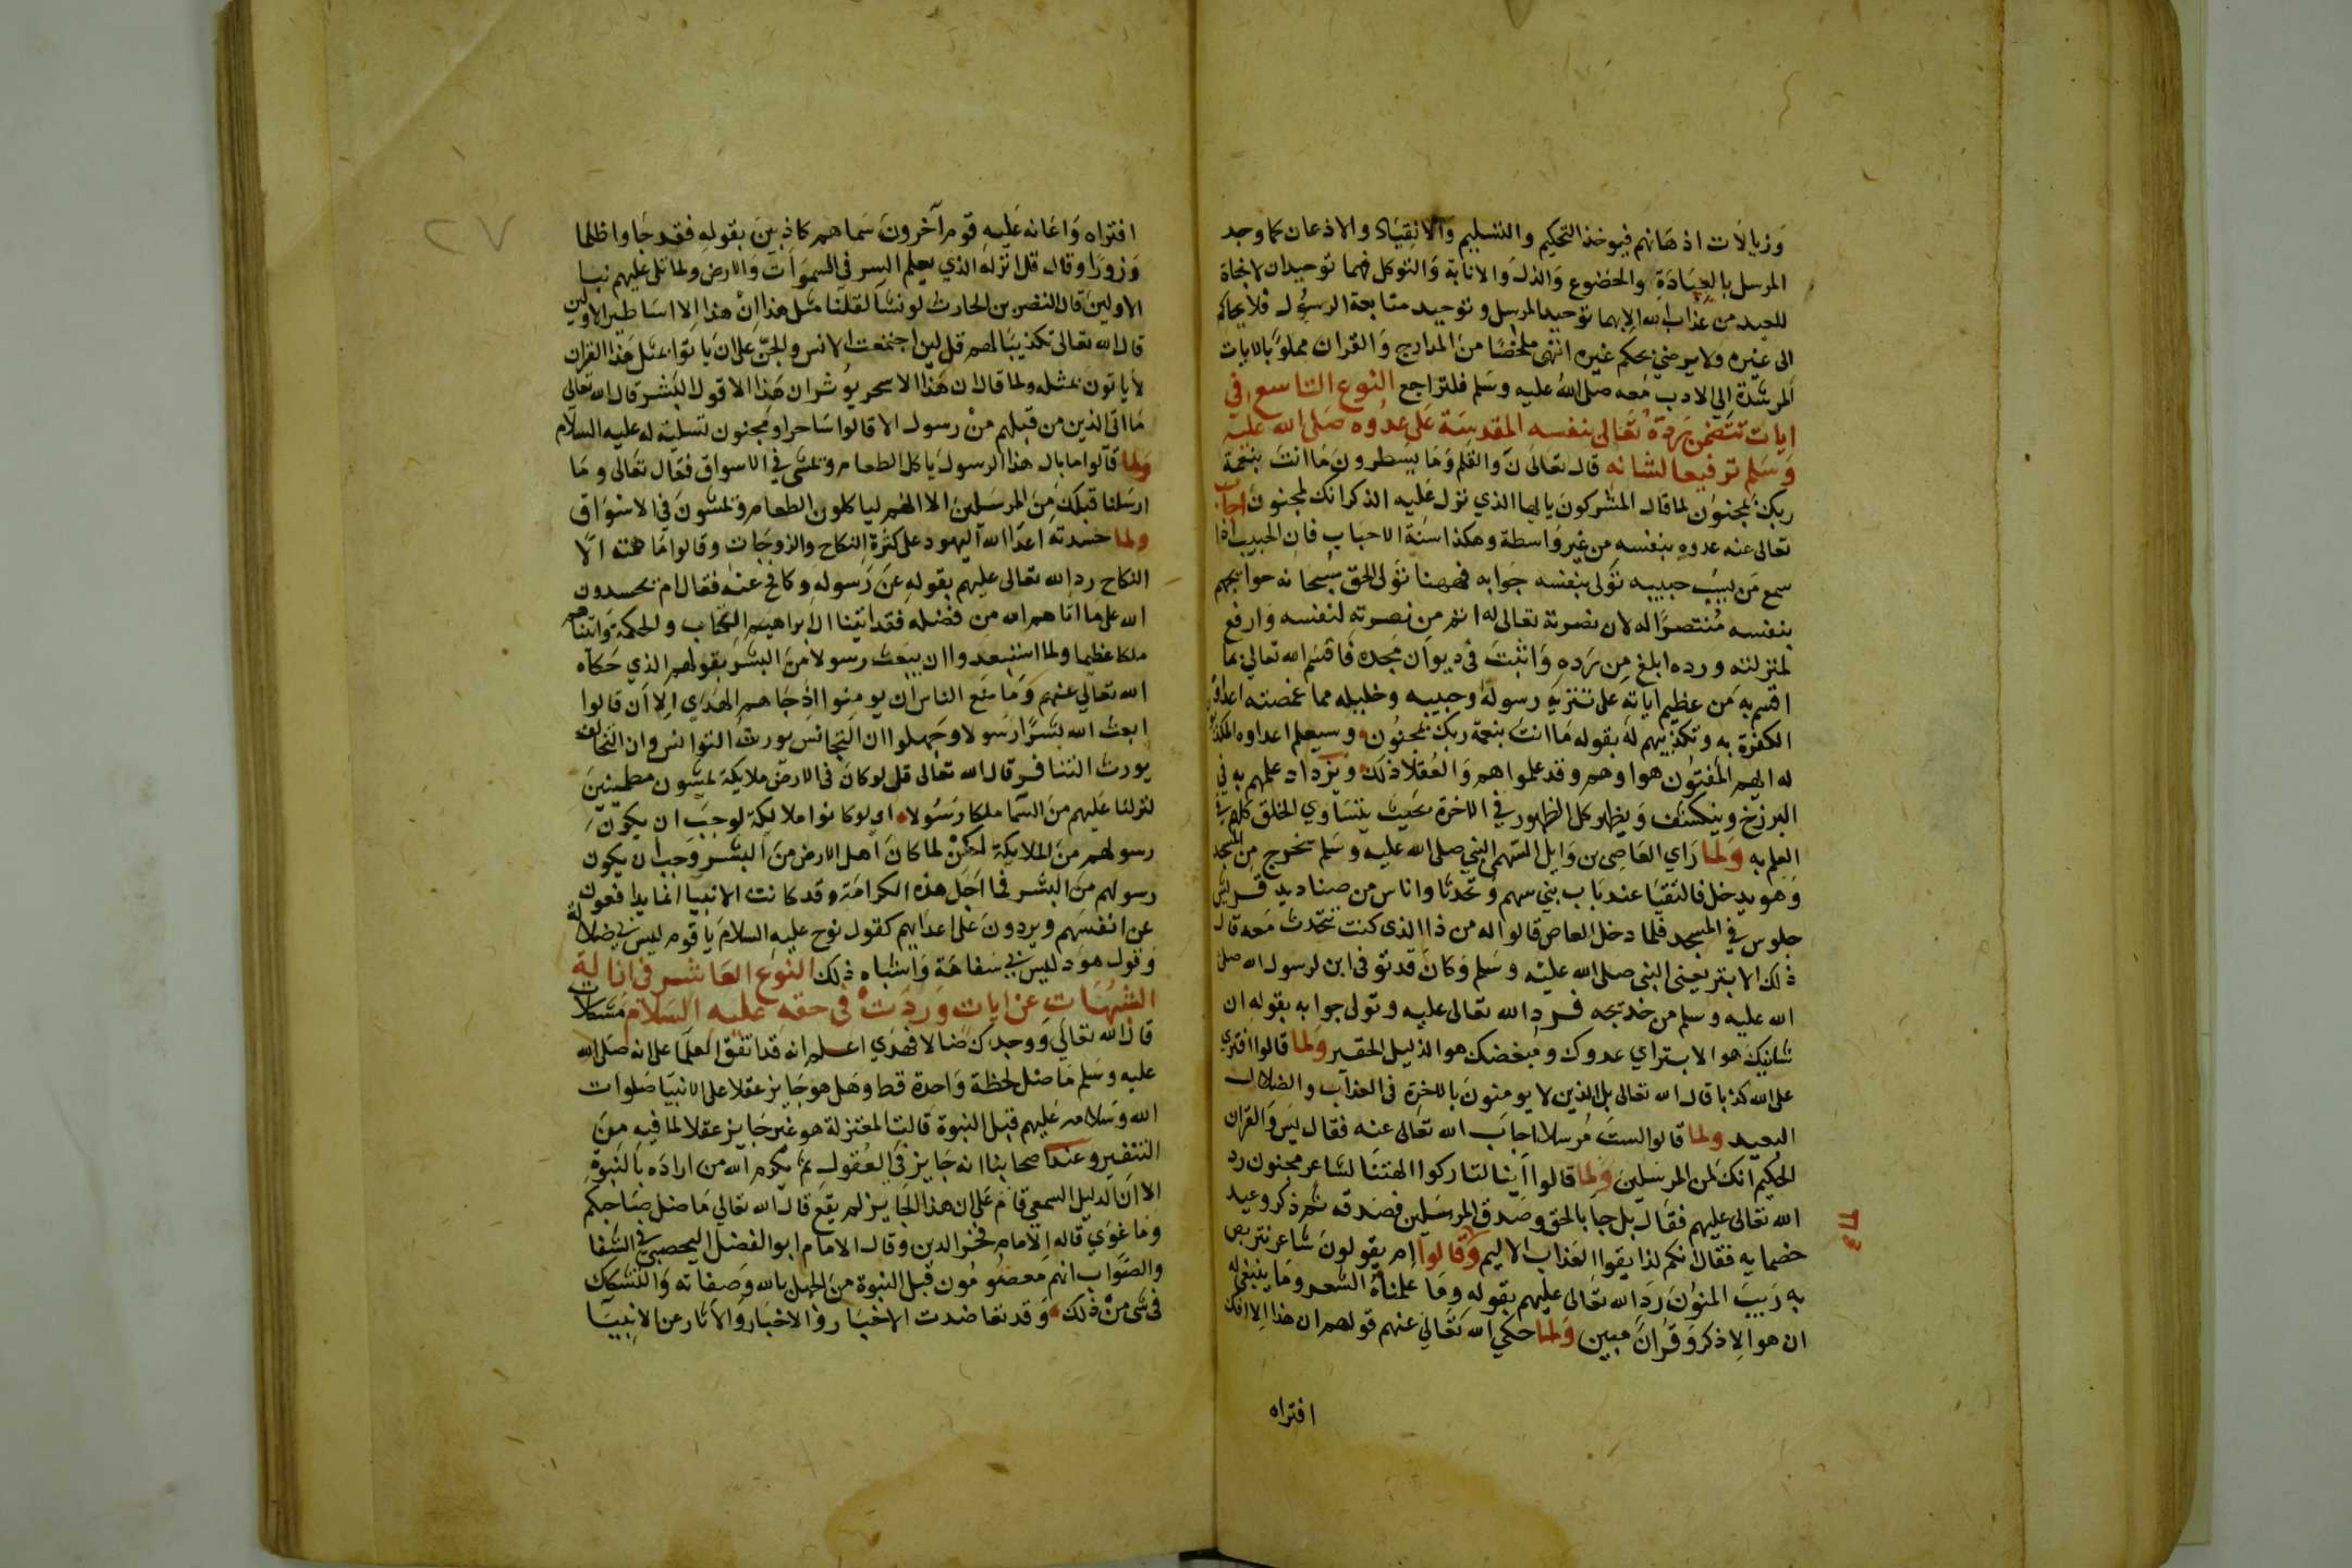 وزبالات اذهانهم فيوخذ التحكيم والتسليم والانقياد والاذعان كما وجد
المرسل بالعبادة والخضوع والذل والانابة والتوكل فهما توحيدان لا نجاة
للعبد من عذاب الله الا بهما توحيد المرسل وتوحيد متابعة الرسول فلا يحاكم
الى غيره ولا يرضي بحكم غيره انتهى ملخصا من المدارج والقران مملو بالايات
المرشدة الى الادب معه صلى الله عليه وسلم فلتراجع النوع التاسع في
ايات تتضمن رده تعالى بنفسه المقدسة على عدوه صلى الله عليه
وسلم ترفيعا لشانه قال تعالى ن والقلم وما يسطرون ما انت بنعمة
ربك بمجنون لما قال المشركون يا ايها الذي نزل عليه الذكر انك لمجنون اجاب
تعالى عنه عدوه بنفسه من غير واسطة وهكذا سنة الاحباب فان الحبيب اذا
سمع من يسب حبيبه تولى بنفسه جوابه فههنا تولى الحق سبحانه جوابهم
بنفسه منتصرا له لان نصرته تعالى له اتم من نصرته لنفسه وارفع
لمنزلته ورده ابلغ من رده واثبت في ديوان مجده فاقسم الله تعالي بما
اقسم به من عظيم اياته على تنزيه رسوله وحبيبه وخليله مما غمصته اعداوه
الكفرة به وتكذيبهم له بقوله ما انت بنعمة ربك بمجنون وسيعلم اعداوه المكذبون
له ايهم المفتون هو او هم وقد علموا هم والعقلا ذلك ويزداد علمهم به في
البرزخ وينكشف ويظهر كل الظهور في الاخرة بحيث يتساوي الخلق كلهم في
العلم به ولما راي العاصي بن وايل السهمي النبي صلى الله عليه وسلم يخرج من المسجد
وهو يدخل فالتقيا عند باب بني سهم وتحدثا واناس من صناديد قريش
جلوس في المسجد فلما دخل العاص قالوا له من ذا الذي كنت تتحدث معه قال
ذلك الابتر يعني النبي صلى الله عليه وسلم وكان قد توفى ابن لرسول الله صلى
الله عليه وسلم من خديجه فرد الله تعالى عليه وتولى جوابه بقوله ان
شانيك هو الابتر اي عدوك ومبغضك هو الذليل الحقير ولما قالوا افترى
على الله كذبا قال الله تعالى بل الذين لا يومنون بالاخرة في العذاب والضلال
البعيد ولما قالوا لست مرسلا اجاب الله تعالى عنه فقال يس والقران
الحكيم انك لمن المرسلين ولما قالوا اينا لتاركوا الهتنا لشاعر مجنون رد
الله تعالى عليهم فقال بل جا بالحق وصدق المرسلين فصدقه ثم ذكر وعيد
خصمايه فقال انكم لذايقوا العذاب الاليم ولما قالوا ام يقولون شاعر نتربص
به ريب المنون رد الله تعالى عليهم بقوله وما علمناه الشعر وما ينبغي له
ان هو الا ذكر وقران مبين ولما حكي الله تعالى عنهم قولهم ان هذا الا افك
افتراه
افتراه واعانه عليه قوم آخرون سماهم كاذبين بقوله فقد جاوا ظلما
وزورا وقال قل انزله الذي يعلم السر في السموات والارض ولما تلى عليهم نبا
الاولين قال النضر بن الحارث لو نشا لقلنا مثل هذا ان هذا الا اساطير الاولين
قال الله تعالى تكذيبا لهم قل لين اجتمعت الانس والجن على ان ياتوا بمثل هذا القران
لا ياتون بمثله ولما قال ان هذا الا سحر يوثر ان هذا الا قول البشر قال الله تعالى
ما اتى الذين من قبلهم من رسول الا قالوا ساحر او مجنون تسلية له عليه السلام
ولما قالوا ما بال هذا الرسول ياكل الطعام ويمشي في الاسواق فقال تعالى وما
ارسلنا قبلك من المرسلين الا انهم لياكلون الطعام ويمشون في الاسواق
ولما حسدته اعدا الله اليهود على كثرة النكاح والزوجات وقالوا ما همته الا
النكاح رد الله تعالى عليهم بقوله عن رسوله وكافح عنه فقال ام يحسدون
الله على ما اتاهم الله من فضله فقد اتينا ال ابراهيم الكتاب والحكمة واتيناهم
ملكا عظيما ولما استبعدوا ان يبعث رسولا من البشر بقولهم الذي حكاه
الله تعالى عنهم وما منع الناس ان يومنوا اذ جاهم الهدي الا ان قالوا
ابعث الله بشرا رسولا وجهلوا ان التجانس يورث التوانس وان التخالف
يورث التنافر قال الله تعالى قل لو كان في الارض ملايكة يمشون مطمينين
لنزلنا عليهم من السما ملكا رسولا اي لو كانوا ملايكة لوجب ان يكون
رسولهم من الملايكة لكن لما كان اهل الارض من البشر وجب ان يكون
رسولهم من البشر فما اجل هذه الكرامة وقد كانت الانبيا انما يدافعون
عن انفسهم ويردون على اعدايهم كقول نوح عليه السلام يا قوم ليس بي ضلالة
وقول هود ليس بي سفاهة واشباه ذلك النوع العاشر في ازالة
الشبهات عن ايات وردت في حقه عليه السلام مشكلات
قال الله تعالى ووجدك ضالا فهدي اعلم انه قد اتفق العلما على انه صلى الله
عليه وسلم ما ضل لحظة واحدة قط وهل هو جايز عقلا على الانبيا صلوات
الله وسلامه عليهم قبل النبوة قالت المعتزلة هو غير جايز عقلا لما فيه من
التنفير وعند اصحابنا انه جايز في العقول ثم يكرم الله من اراده بالنبوة
الا ان الدليل السمعي قام على ان هذا الجايز لم يقع قال الله تعالي ما ضل صاحبكم
وما غوي قاله الامام فخر الدين وقال الامام ابو الفضل اليحصبي في الشفا
والصواب انهم معصومون قبل النبوة من الجهل بالله وصفاته والتشكك
في شي من ذلك وقد تعاضدت الاخبار والاثار عن الانبيا